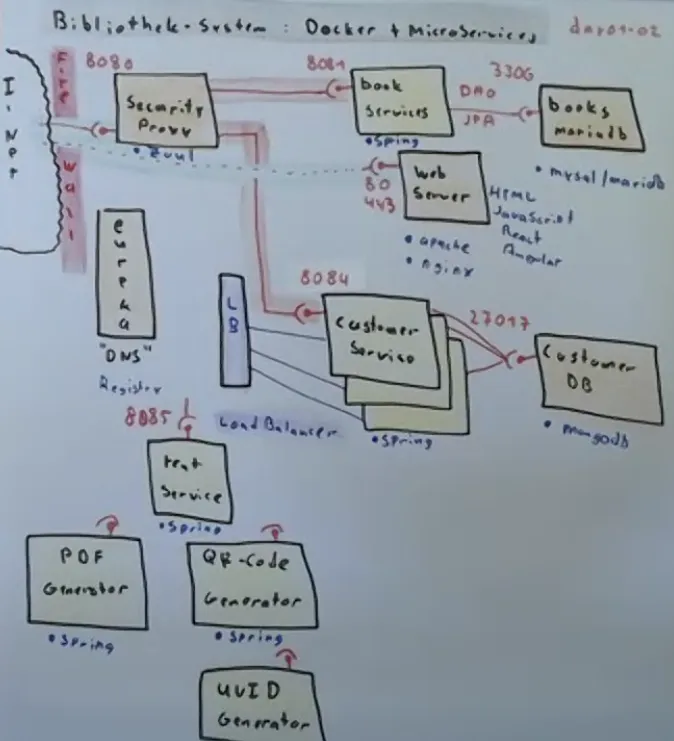 Bibliothek-System : Docker + MicroServices
day01-02
I-Net
Fire
Wall
8080
Security
Proxy
• zuul
8081
book
Services
• Spring
DAO
JPA
3306
books
mariadb
• mysql/mariadb
80
443
Web
Server
• apache
• nginx
HTML
JavaScript
React
Angular
eureka
"DNS"
Register
LB
Load Balancer
8084
Customer
Service
• Spring
27017
Customer
DB
• mongodb
8085
rent
Service
• Spring
PDF
Generator
• Spring
QR-Code
Generator
• Spring
UUID
Generator